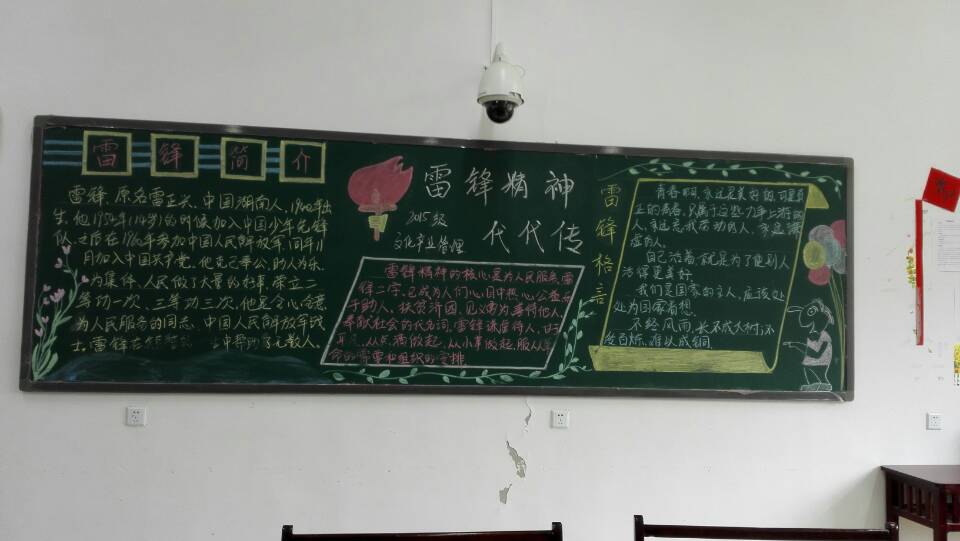 雷锋简介
雷锋,原名雷正兴,中国湖南人,1940年出
生,他1954年(14岁)的时候加入中国少年先锋
队,之后在1960年参加中国人民解放军,同年11
月加入中国共产党。他克己奉公,助人为乐,
为集体、人民做了大量的好事,荣立二
等功一次、三等功三次,他是全心全意
为人民服务的同志,中国人民解放军战
士。雷锋在
雷锋精神
代代传
2015级
文化产业管理
雷锋精神的核心是为人民服务,雷
锋二字,已成为人们心目中热心公益
于助人、扶贫济困、见义勇为、善待他人、
奉献社会的代名词,雷锋诚度待人,
从点滴做起,从小事做起,服从
命的需要和组织的安排
雷锋格言
青春啊,永远是美好的,可是真
正的青春,只属于这些力争上游的
人,永远忘我劳动的人,永远谦
虚的人。
自己活着,就是为了使别人
活得更美好。
我们是国家的主人,应该处
处为国家着想。
不经风雨,长不成大树;不
受百炼,难以成钢。